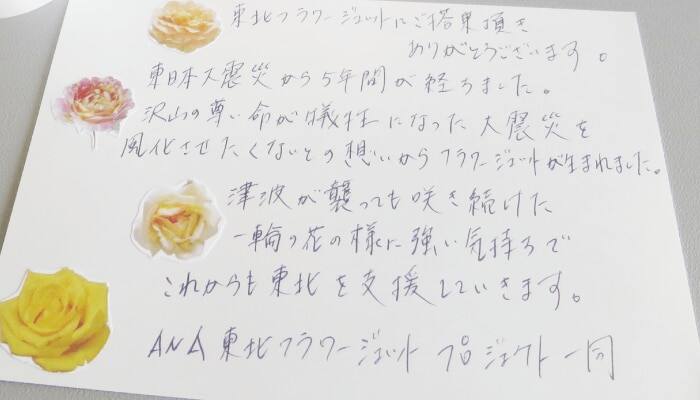 東北フラワージェットにご搭乗頂き
ありがとうございます。
東日本大震災から5年間が経ちました。
沢山の尊い命が犠牲になった大震災を
風化させたくないとの想いからフラワージェットが生まれました。
津波が襲っても咲き続けた
一輪の花の様に強い気持ちで
これからも東北を支援していきます。
ANA東北フラワージェットプロジェクト一同